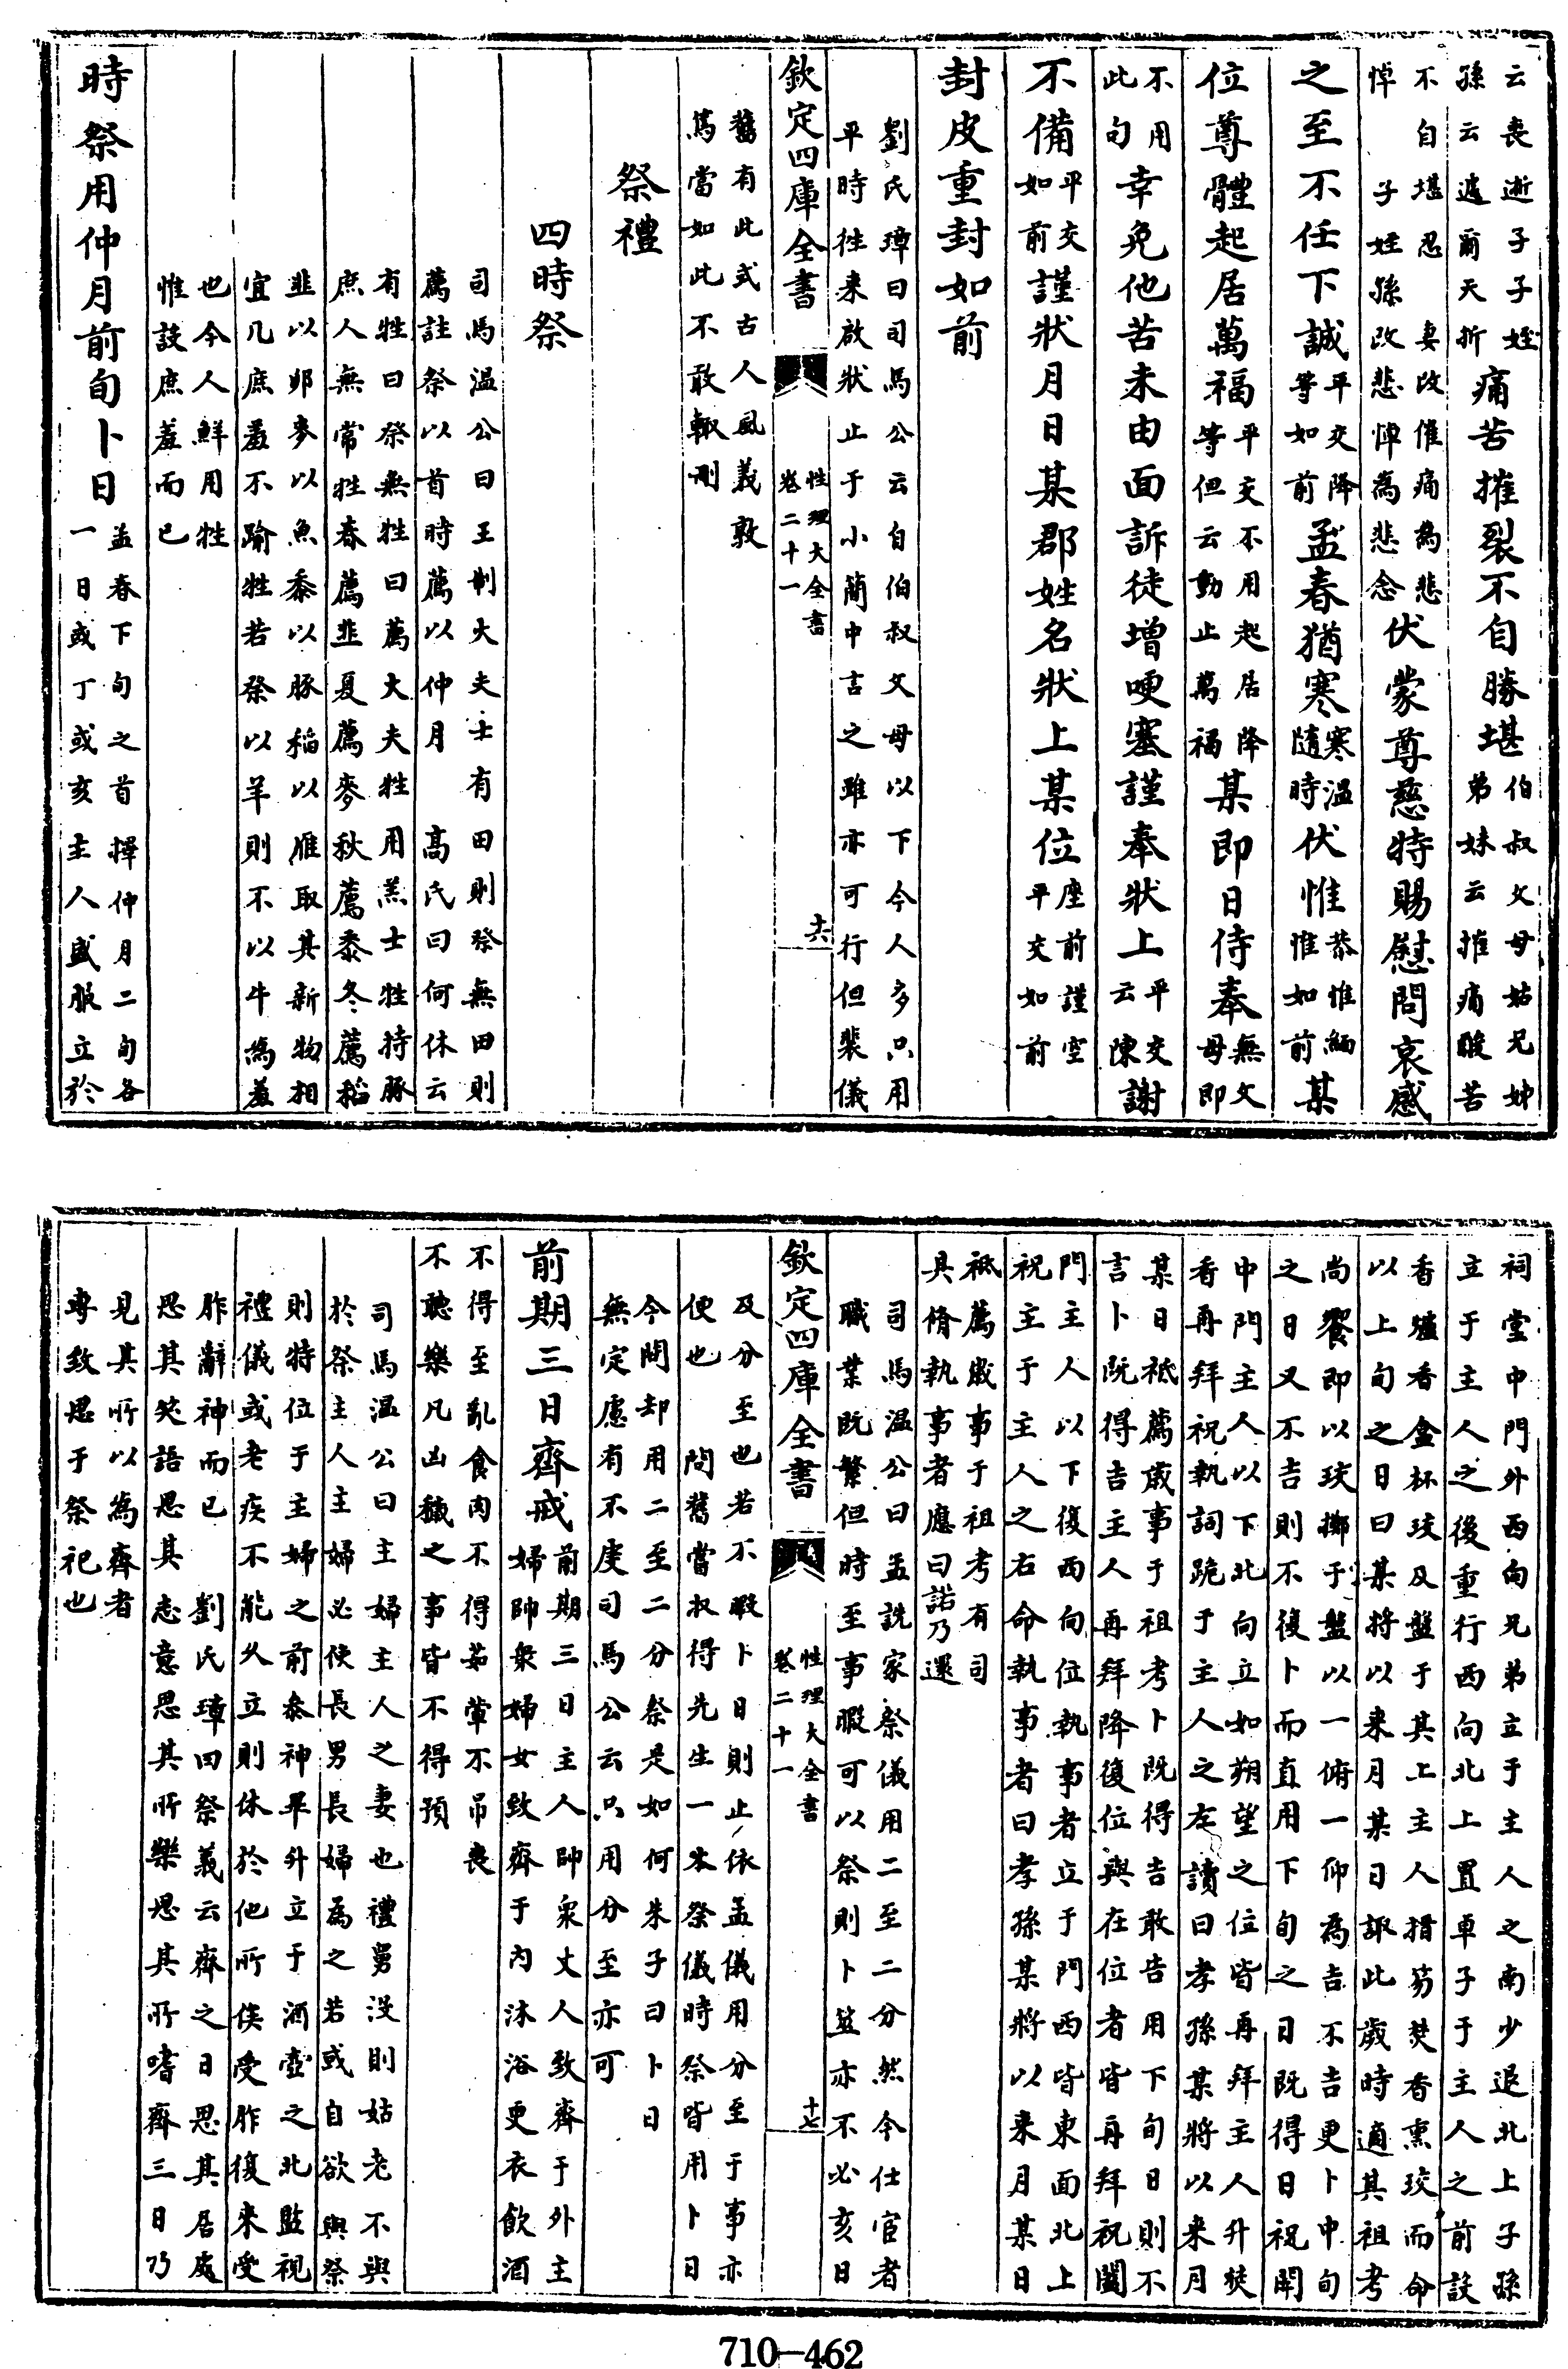 云喪逝子子姪
孫云遽爾夭折
痛苦摧裂不自勝堪
伯叔父母姑兄姊
弟妹云摧痛酸苦
不自堪忍　妻改催痛為悲
悼　子姪孫改悲悼為悲念
伏蒙尊慈特賜慰問哀感
之至不任下誠
平交降
等如前
孟春猶寒
寒温
隨時
伏惟
恭惟緬
惟如前
某
位尊體起居萬福
平交不用起居降
等但云動止萬福
某即日侍奉
無父
母即
不用
此句
幸免他苦未由面訴徒增哽塞謹奉狀上
平交
云陳
謝
不備
平交
如前
謹狀月日某郡姓名狀上某位
座前謹空
平交如前
封皮重封如前
劉氏璋曰司馬公云自伯叔父母以下今人多只用
平時往来啟狀止于小簡中言之雖亦可行但裴儀
欽定四庫全書
性理大全書
卷二十一
十六
舊有此式古人風義敦
篤當如此不敢輙刪
祭禮
四時祭
司馬温公曰王制大夫士有田則祭無田則
薦註祭以首時薦以仲月　高氏曰何休云
有牲曰祭無牲曰薦大夫牲用羔士牲持豚
庶人無常牲春薦韭夏薦麥秋薦黍冬薦稻
韭以卵麥以魚黍以豚稻以雁取其新物相
宜凡庶羞不踰牲若祭以羊則不以牛為羞
也今人鮮用牲
惟設庶羞而已
時祭用仲月前旬卜日
孟春下旬之首擇仲月二旬各
一日或丁或亥主人盛服立於
祠堂中門外西向兄弟立于主人之南少退北上子孫
立于主人之後重行西向北上置卓子于主人之前設
香爐香盒杯珓及盤于其上主人搢笏焚香熏珓而命
以上旬之日曰某將以来月某日諏此歲時適其祖考
尚饗即以珓擲于盤以一俯一仰為吉不吉更卜中旬
之日又不吉則不復卜而直用下旬之日既得日祝開
中門主人以下北向立如朔望之位皆再拜主人升焚
香再拜祝執詞跪于主人之左讀曰孝孫某將以来月
某日祗薦歲事于祖考卜既得吉敢告用下旬日則不
言卜既得吉主人再拜降復位與在位者皆再拜祝闔
門主人以下復西向位執事者立于門西皆東面北上
祝主于主人之右命執事者曰孝孫某將以来月某日
祗薦歲事于祖考有司
具脩執事者應曰諾乃退
司馬温公曰孟詵家祭儀用二至二分然今仕宦者
職業既繁但時至事暇可以祭則卜筮亦不必亥日
欽定四庫全書
性理大全書
卷二十一
十七
及分至也若不暇卜日則止依孟儀用分至于事亦
便也　問舊嘗收得先生一本祭儀時祭皆用卜日
今聞却用二至二分祭是如何朱子曰卜日
無定慮有不䖍司馬公云只用分至亦可
前期三日齊戒
前期三日主人帥衆丈人致齊于外主
婦帥衆婦女致齊于内沐浴更衣飲酒
不得至亂食肉不得茹葷不吊喪
不聽樂凡凶穢之事皆不得預
司馬温公曰主婦主人之妻也禮舅没則姑老不與
於祭主人主婦必使長男長婦為之若或自欲與祭
則特位于主婦之前叅神畢升立于酒壺之北監視
禮儀或老疾不能久立則休於他所俟受胙復来受
胙辭神而已　劉氏璋曰祭義云齊之日思其居處
思其笑語思其志意思其所樂思其所嗜齊三日乃
見其所以為齊者
專致思于祭祀也
710-462